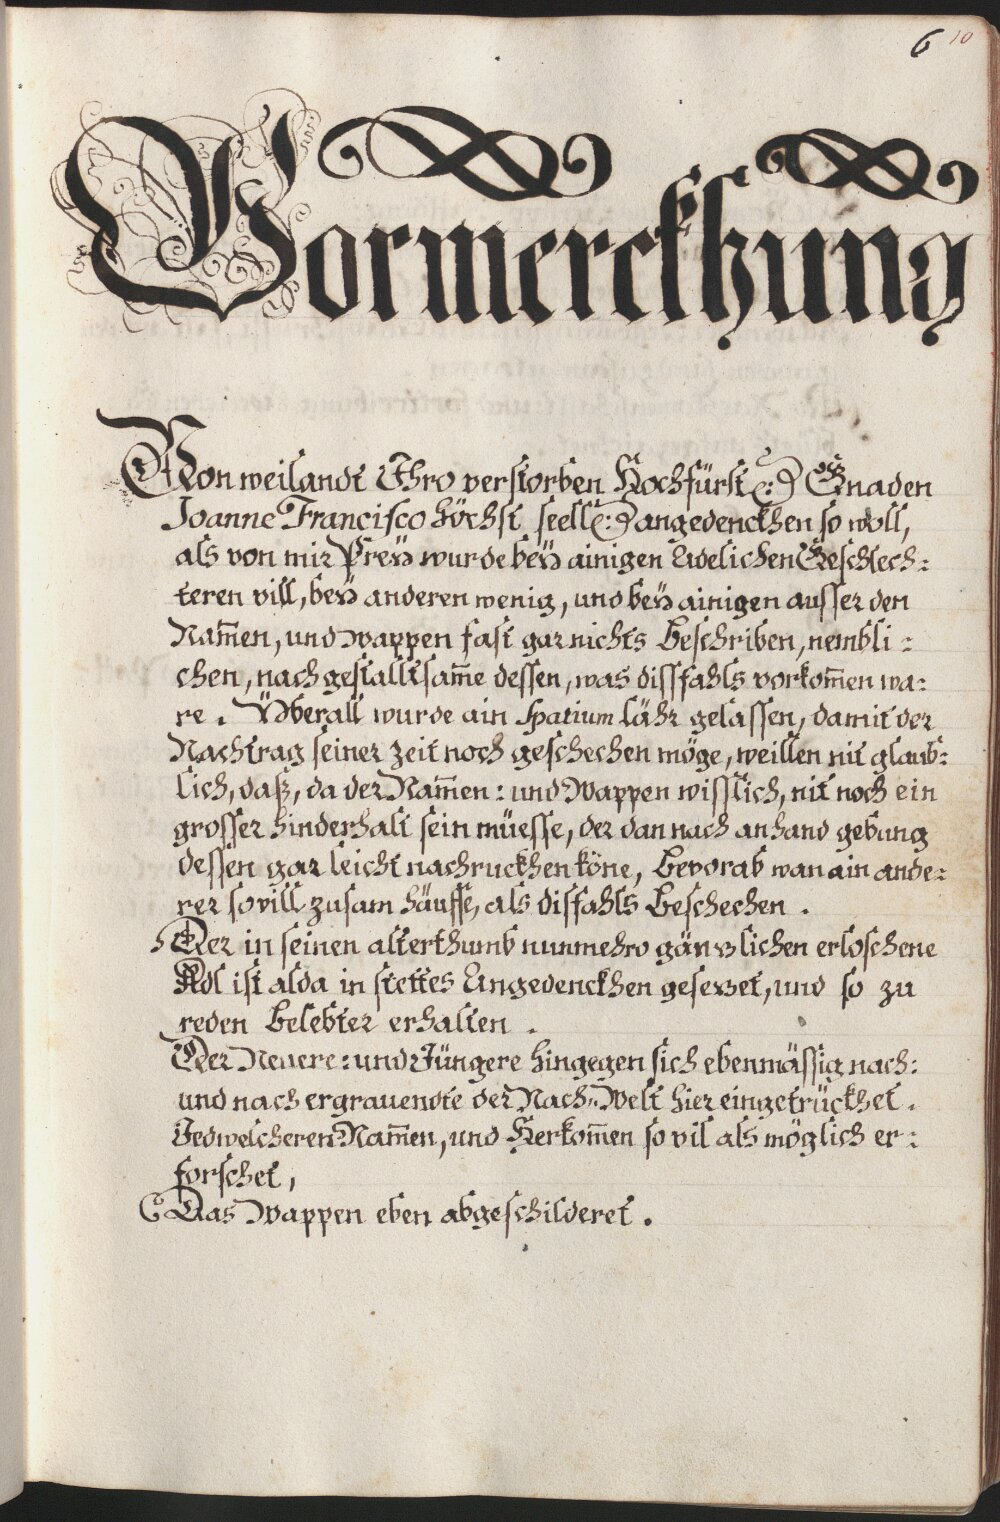 6 10
Vormerckhung
Von weilandt Ihro verstorben Hochfürst(:) Gnaden
Joanne Francisco höchst seell(:) angedenckhen so woll,
als von mir Preÿ wurde beÿ ainigen Adelichen Geschlech:
teren vill, beÿ anderen wenig, und beÿ ainigen ausser den
Nam̄en, und wappen fast gar nichts beschriben, nembli:
chen, nach gestalltsam̄e dessen, was dissfahls vorkom̄en wa:
re. Überall wurde ain Spatium lähr gelassen, damit der
Nachtrag seiner zeit noch geschechen möge, weillen nit glaub:
lich, daß, da der Nam̄en: und Wappen wisslich, nit noch ein
grosser hinderhalt sein müesse, der dan nach anhand gebung
dessen gar leicht nachruckhen köne, bevorab wan ain ande:
rer sovill zusam häuffe, als disfahls beschechen.
Der in seinen alterthumb nunmehro gänzlichen erloschene
Adl ist alda in stettes Angedenckhen gesezet, und so zu
reden belebter erhalten.
Der Neuere: und Jüngere hingegen sich ebenmässig nach:
und nach ergrauendte der Nach-Welt hier eingetrückhet.
Jedwelcheren Nam̄en, und Herkom̄en so vil als möglich er:
forschet,
Das Wappen eben abgeschilderet.